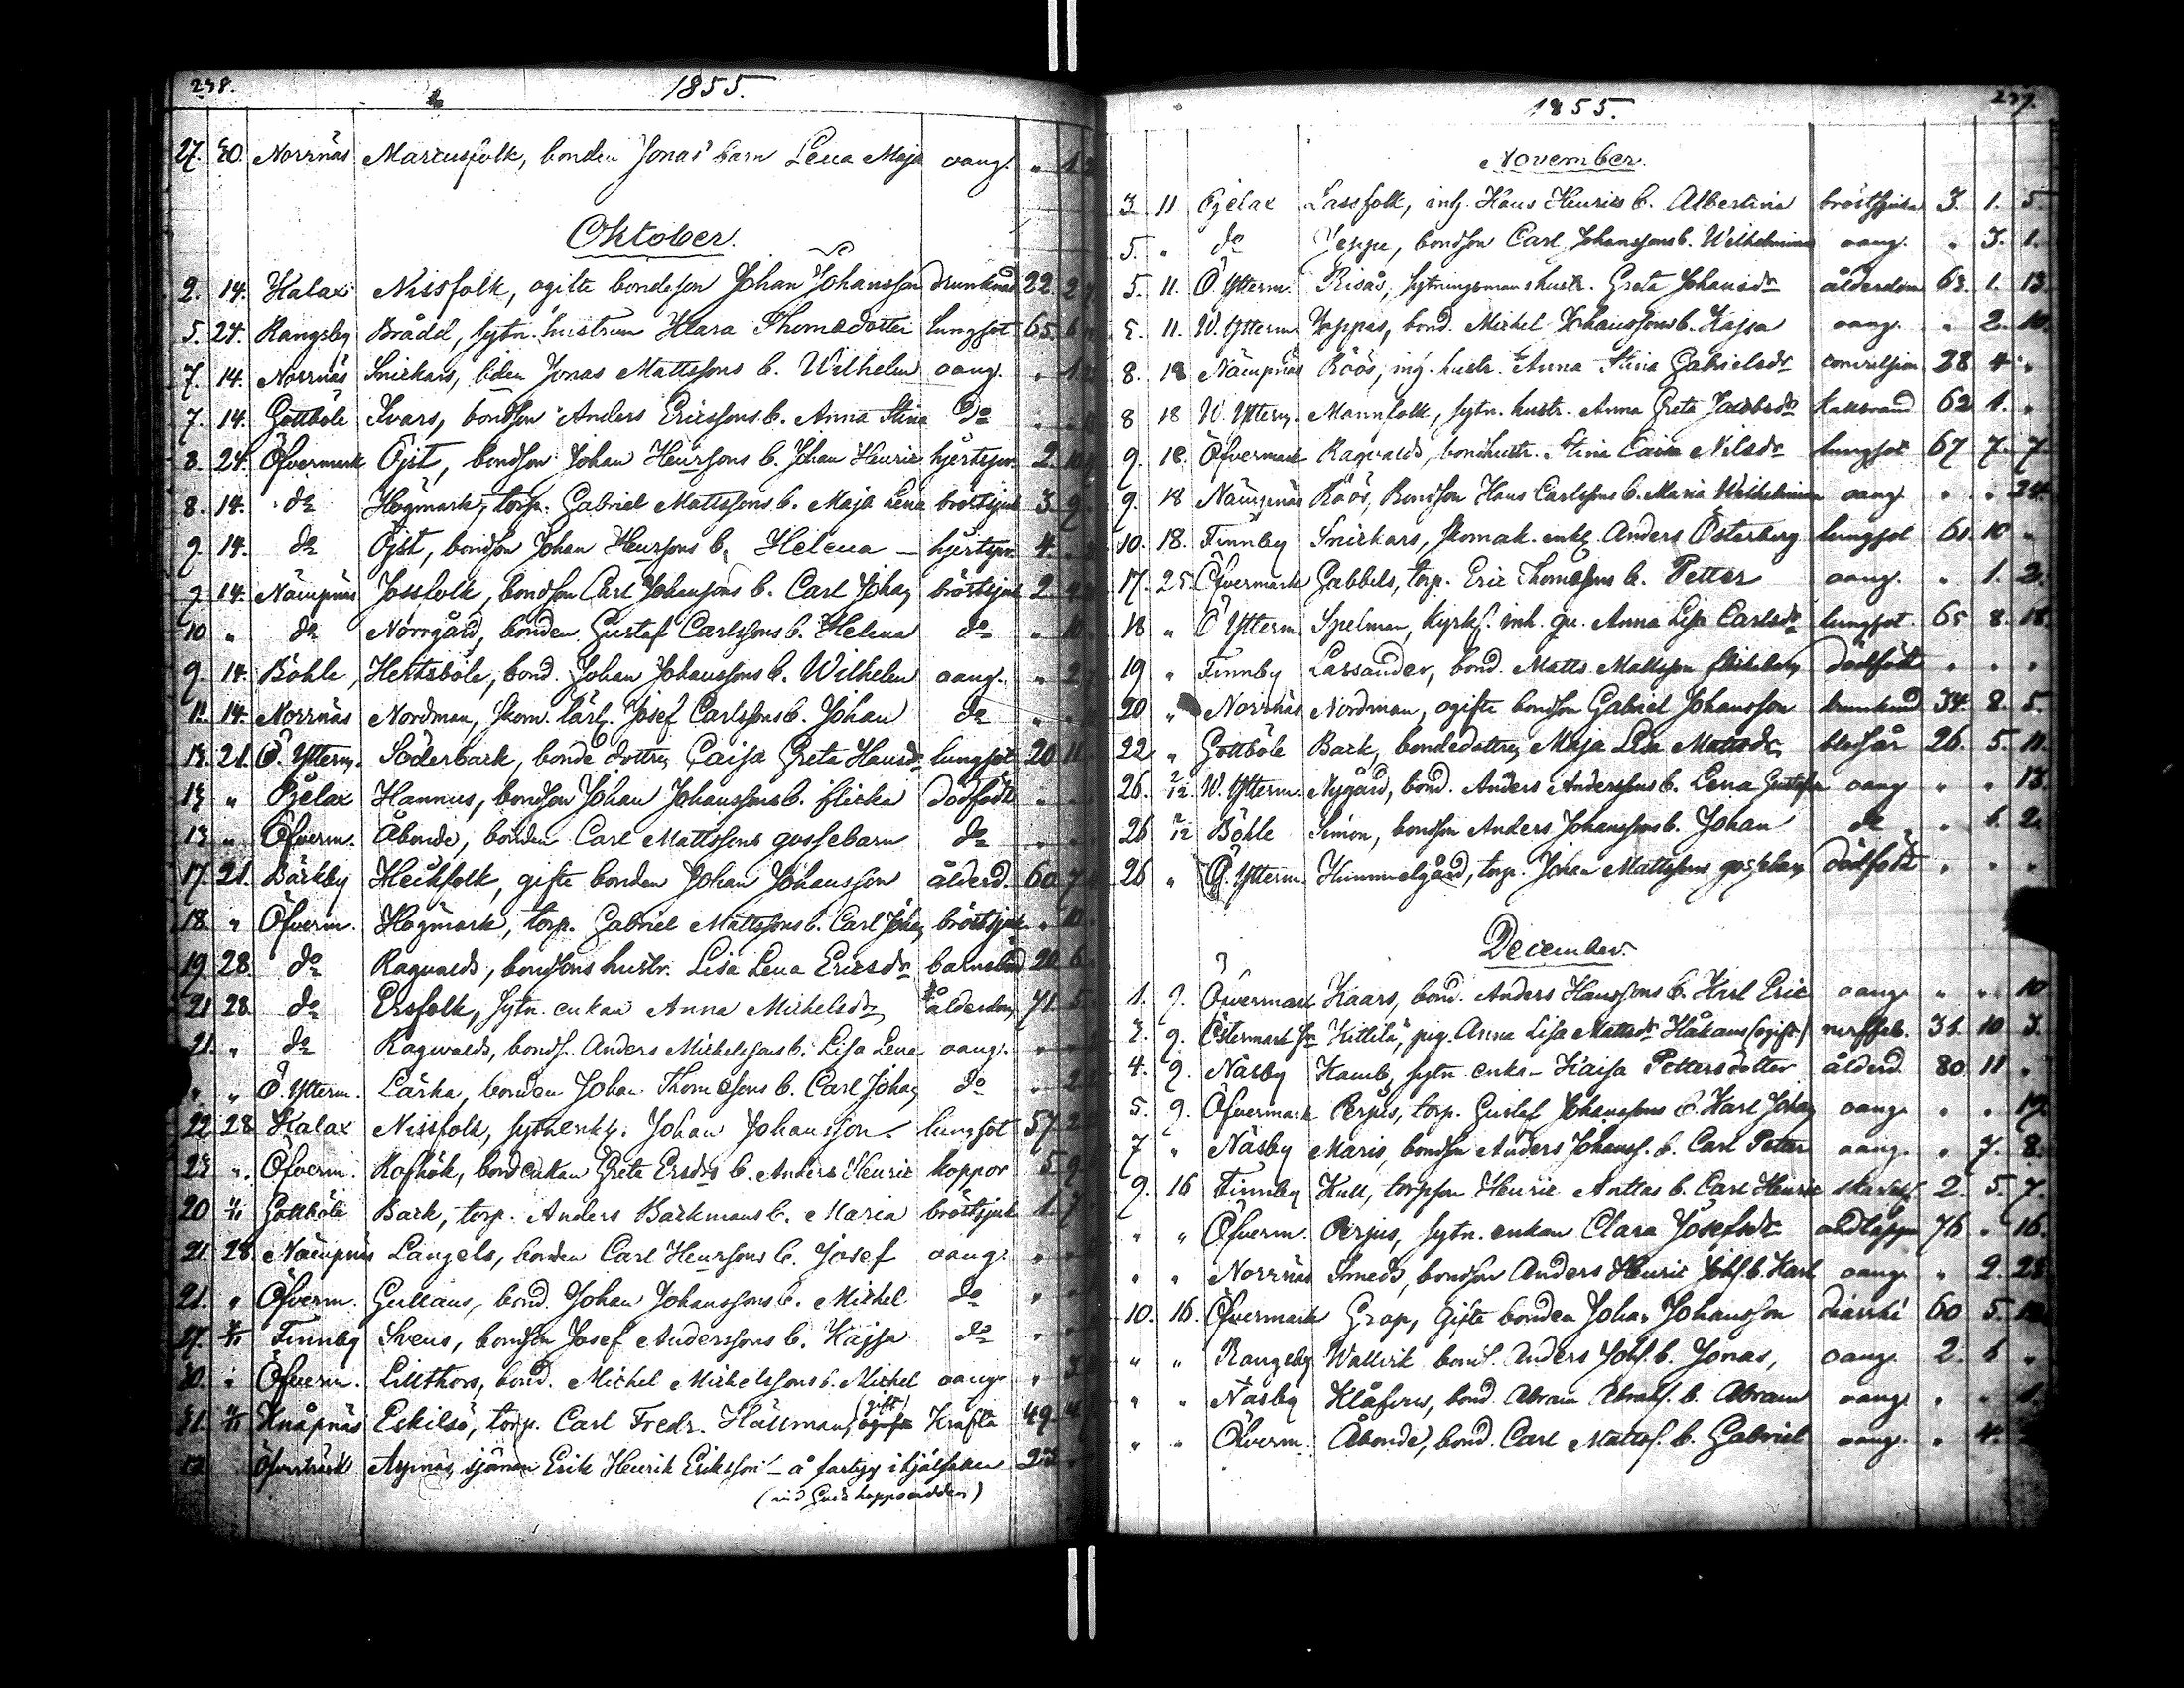 238.
1855.
27. 30. Norrnäs Marcusfolk, bonden Jonas' barn Lena Maja oang. "
Oktober.
2. 14. Kalax Nissfolk, ogifte bondeson Johan Johansson drunknad 22. 2
5. 24. Rangsby Brådd, sytn. hustrun Klara Thomsdotter lungsot 65. 6
7. 14. Norrnäs Snickars, bden Jonas Mattssons b. Wilhelm oang. "
7. 14. Gottböle Ivars, bondson Anders Ericssons b. Anna Stina do
8. 24. Öfvermark Öjst, bondson Johan Henrssons b. Johan Henric hjertspr. 2.
8. 14. do Högmark, torp. Gabriel Mattssons b. Maja Lena bröstsjuk 3. 9
9. 14. do Öjst, bondson Johan Henrssons b. Helena – hjertspr. 4.
9 14. Nämpnäs Jossfolk, bondson Carl Johanssons b. Carl Johan bröstsjuk 2.
10 " do Norrgård, bonden Gustaf Carlssons b. Helena do "
9. 14. Böhle, Herksböle, bond. Johan Johanssons b. Wilhelm oang. " 2
12. 14. Norrnäs Nordman, skom. lärl. Josef Carlssons b. Johan do "
13. 21. Ö. Ytterm. Söderback, bondedottren Caisa Greta Hansdr lungsot 20 11
13 " Pjelax Hannus, bondson Johan Johanssons b. flicka dödfödt "
13 " Öfverm. Åbonde, bonden Carl Mattssons gossebarn do "
17. 21. Bäckby Heikfolk, gifte bonden Johan Johansson ålderd. 60 7
18. " Öfverm. Högmark, torp. Gabriel Mattssons b. Carl Johan bröstsjuk " 10
19 28. do Ragvalds, bondsons hustr. Lisa Lena Ericsdr barnsbörd 20 6
21 28. do Ersfolk, sytn. enkan Anna Michelsdr ålderdom 71. 5
21. " do Ragvalds, bonds. Anders Michelssons b. Lisa Lena oang. "
" " Ö. Ytterm. Lärka, bonden Johan Thomessons b. Carl Johan do " 2
22 28 Kalax Nissfolk, sytn enkl. Johan Johansson lungsot 57 2
23 " Öfverm. Rofhök, bondenkan Greta Ersdrs b. Anders Henric koppor 5. 9
20 1/11 Gottböle Back, torp. Anders Backmans b. Maria bröstsjuk 1. 7
21. 28 Nämpnäs Långels, bonden Carl Henrssons b. Josef oang. "
21. " Öfverm. Gullans, bond. Johan Johanssons b. Michel do "
27. Finnby Svens, bondson Josef Anderssons b. Kajsa do "
30. " Öfverm. Lillthors, bond. Michel Michelssons b. Michel oang " 3
31. Knåpnäs Eskilsö, torp. Carl Fredr. Hällman, (gift) Kräfta 49.
12 Öfverträsk Aspnäs, sjöman Erik Henrik Eriksson – å fartyg ihjälfallen 23
(vid Goda hoppsudden)
239.
1855.
November.
3. 11. Pjelax Lassfolk, inh. Hans Henrics b. Albertina bröstsjuka 3. 1. 5.
5. " do Jeppe, bondson Carl Johanssons b. Wilhelmina oang. " 3. 1.
5. 11. Ö. Ytterm. Risås, sytningsmans hustr. Greta Johansdr ålderdom 63. 1. 13.
5. 11. W. Ytterm. Jeppas, bond. Michel Johanssons b. Kajsa oang. " 2. 10.
8. 18 Nämpnäs Röös, inh. hustr. Anna Stina Gabrielsdr convulsion 28 4 "
8 18 W. Ytterm. Mannfolk, sytn. hustr. Anna Greta Jacobsdr kallbrand 62 1. "
9. 18. Öfvermark Ragvalds, bondhustr. Stina Caisa Nilsdr lungsot 67 7. 7
9. 18 Nämpnäs Röös, Bondson Hans Carlssons b. Maria Wilhelmina oang. " " 24.
10. 18. Finnby Snickars, skomak. enkl. Anders Österberg lungsot 61. 10 "
17. 25 Öfvermark Gabbels, torp. Eric Thomessons b. Petter oang. " 1. 2.
18 " Ö Ytterm. Spelman, kyrks. inh. qv. Anna Lisa Carlsdr lungsot 65 8. 18.
19 " Finnby Lassander, bond. Matts Mattsson flickebarn dödfödt " " "
20 " Norrnäs Nordman, ogifte bondson Gabriel Johansson drunknad 34. 8. 5.
22 " Gottböle Back, bondedottren Maja Lisa Mattsdr 26. 5. 11.
26. 2/12 W. Ytterm. Nygård, bond. Anders Anderssons b. Lena Gustafva oang " " 13.
26 2/12 Böhle Simon, bondson Anders Johanssons b. Johan do " 1. 2.
26 " Ö. Ytterm. Hummelgård, torp. Johan Mattssons gossebarn dödfödt " " "
December.
1. 9. Öfvermark Kaars, bond. Anders Hanssons b. Karl Eric oang. " " 10
3. 9. Östermark fr Kittilä, pig. Anna Lisa Mattsdr Håkans (ogift) nerffeb. 31. 10 3.
4. 9. Näsby Kamb, sytn enka – Kaisa Pettersdotter ålderd. 80 11 "
5. 9. Öfvermark Perjus, torp. Gustaf Johanssons b. Karl Johan oang. " " 19.
7 " Näsby Maris, bondson Anders Johanss. b. Carl Petter oang. " 7. 8.
9. 16 Finnby Kull, torpson Henric Anttas b. Carl Henric 2. 5. 7.
" " Öfverm. Perjus, sytn. enkan Clara Josefsdr 76 " 16.
" " Norrnäs Smeds, bondson Anders Henric Johs. b. Karl oang. " 2. 28
10. 16. Öfvermark Grop, Gifte bonden Johan Johansson diarrhé 60 5.
" " Rangsby Wallvik bonds. Anders Johs. b. Jonas, oang. 2. 1 "
" " Näsby Klåfvus, bond. Abram Abrahs. b. Abram oang. " " 1.
" " Öfverm. Åbonde, bond. Carl Mattss. b. Gabriel oang. " 4.